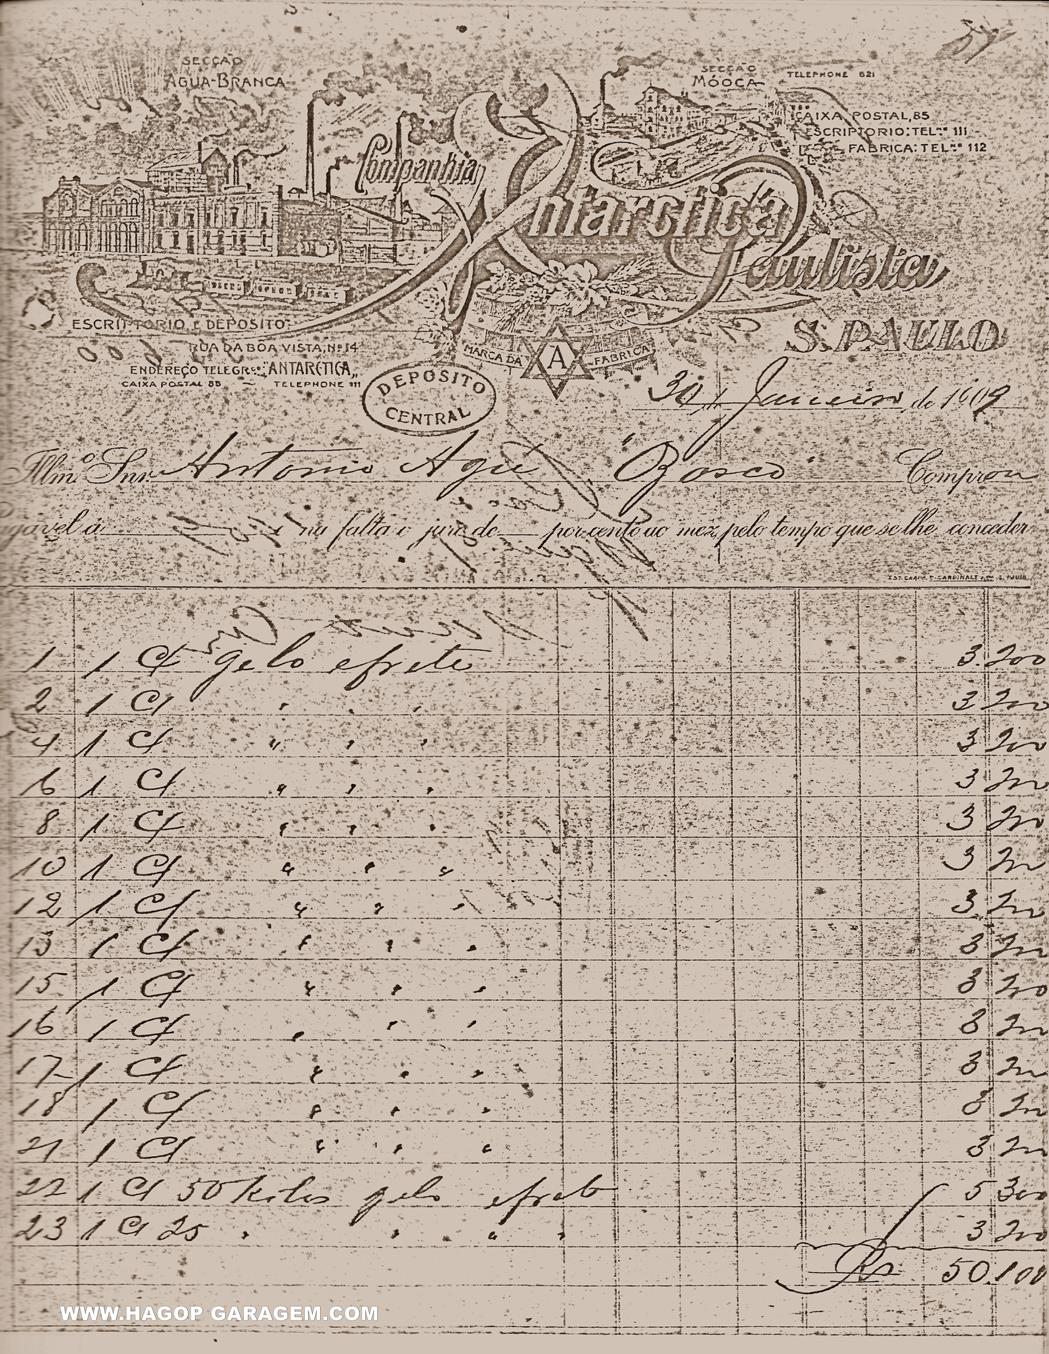 57
SECÇÃO
AGUA-BRANCA
SECÇÃO
MÓOCA
TELEPHONE 621
CAIXA POSTAL, 85
ESCRIPTORIO: TEL. 111
FABRICA: TEL. 112
Companhia
Antarctica
Paulista
ESCRIPTORIO E DEPOSITO:
RUA DA BÔA VISTA, Nº 14
ENDEREÇO TELEGR.: "ANTARCTICA"
CAIXA POSTAL 85 TELEPHONE 111
MARCA DA A FABRICA
S. PAULO
DEPOSITO
CENTRAL
30 de Janeiro de 1909
Illmº Snr. Antonio "Bosco" Comprou
gavel a na falta o juro de por cento ao mez pelo tempo que se lhe conceder
1 1 Ct gelo e frete 3 200
2 1 Ct " " " 3 200
4 1 Ct " " " 3 200
6 1 Ct " " " 3 200
8 1 Ct " " " 3 200
10 1 Ct " " " 3 200
12 1 Ct " " " 3 200
13 1 Ct " " " 3 200
15 1 Ct " " " 3 200
16 1 Ct " " " 3 200
17 1 Ct " " " 3 200
18 1 Ct " " " 3 200
21 1 Ct " " " 3 200
22 1 Ct 50 kilos gelo e frete 5 300
23 1 Ct 25 " " " " 3 200
Rs 50.100
WWW.HAGOP GARAGEM.COM